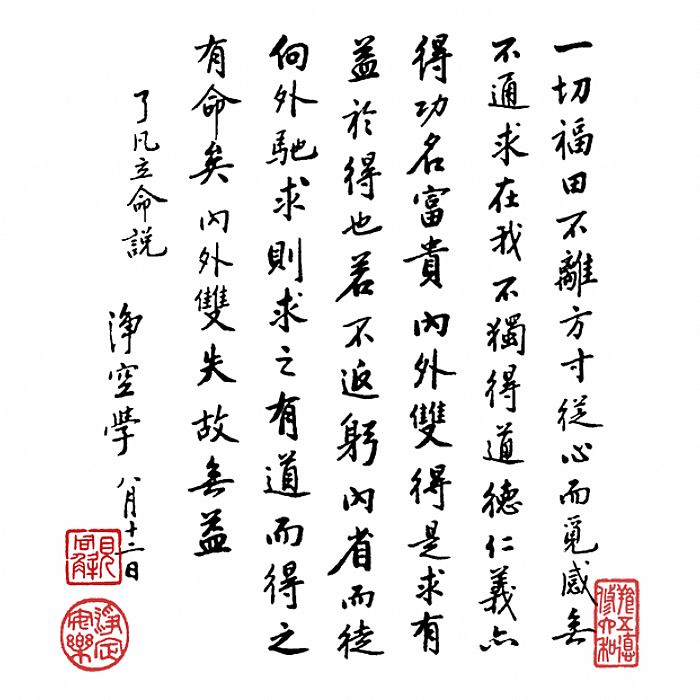 一切福田不離方寸從心而覓感無
不通求在我不獨得道德仁義亦
得功名富貴內外雙得是求有
益於得也若不返躬內省而徒
向外馳求則求之有道而得之
有命矣內外雙失故無益
了凡立命說
淨空學 八月十二日
淨定安樂